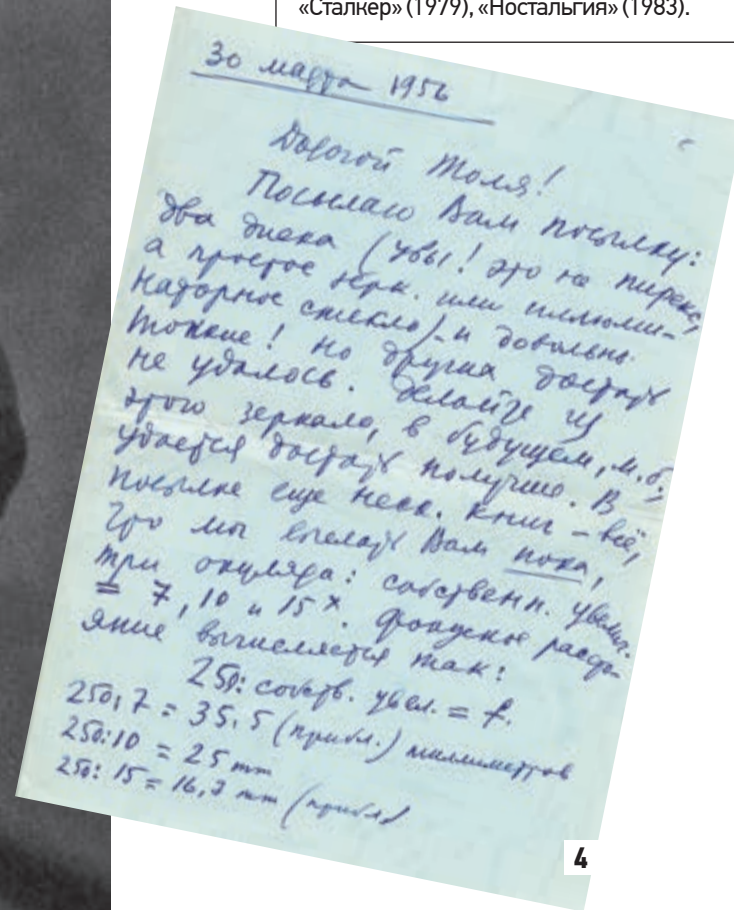 «Сталкер» (1979), «Ностальгия» (1983).
30 марта 1956
Дорогой Толя!
Посылаю Вам посылку:
два диска (увы! это не пирекс,
а простое зерк. или иллюми-
наторное стекло) – и довольно
тонкие! Но других достать
не удалось. Делайте из
этого зеркало, в будущем, м.б.,
удастся достать получше. В
посылке еще неск. книг – всё,
что мы выслать Вам пока,
три окуляра: собственн. увелич.
= 7, 10 и 15 ×. Фокусное рассто-
яние вычисляется так:
250: собств. увел. = f.
250:7 = 35,5 (прибл.) миллиметров
250:10 = 25 mm
250:15 = 16,7 mm (прибл.)
4